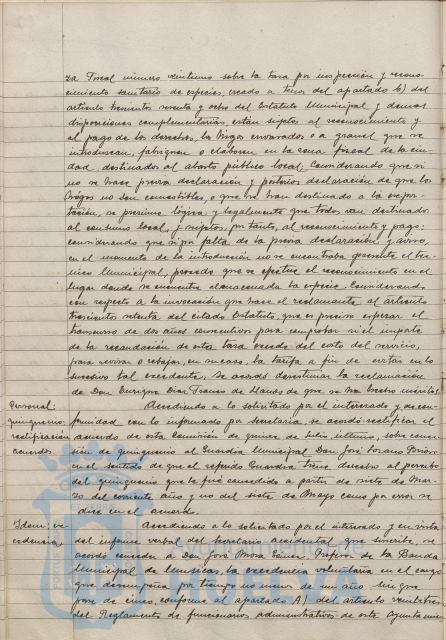 za Fiscal número veintiuno sobre la tasa por inspección y recono-
cimiento sanitario de especies, creado a tenor del apartado b) del
artículo trescientos setenta y ocho del Estatuto Municipal y demas
disposiciones complementarias, están sujetos al reconocimiento y
al pago de los derechos, los trigos envasados o a granel que se
introduzcan, fabriquen o elaboren en la zona fiscal de la ciu-
dad, destinados al abasto público local; Considerando que si
no se hace previa declaración y posterior declaración de que los
trigos no son comestibles, o que se han destinado a la expor-
tación, se presume lógica y legalmente que todos van destinados
al consumo local, y sujetos, por tanto, al reconocimiento y pago;
considerando que si por falta de la previa declaración y aviso,
en el momento de la introducción no se encontraba presente el téc-
nico Municipal, procede que se efectúe el reconocimiento en el
lugar donde se encuentre almacenada la especie. Considerando
con respecto a la invocación que hace el reclamante al artículo
trescientos setenta del citado Estatuto, que es preciso esperar el
transcurso de dos años consecutivos para comprobar si el importe
de la recaudación de estas tasa excede del costo del servicio,
para revisar o rebajar, en su caso, la tarifa a fin de evitar en lo
sucesivo tal excedente, Se acordó desestimar la reclamación
de Don Enrique Diaz Franco de Llanos de que se ha hecho mérito.
Personal: Accediendo a lo solicitado por el interesado y de con-
quinquenio: formidad con lo informado por Secretaria, se acordó rectificar el
rectificación acuerdo de esta Comisión de quince de Julio último, sobre conce-
acuerdo. sion de quinquenio al Guardia Municipal Don José Lozano
en el sentido de que el referido Guardia tiene derecho al percibo
del quinquenio que le fué concedido a partir de siete de Mar-
zo del corriente año y no del siete de Mayo como por error se
dice en el acuerdo.
Idem: ex- Accediendo a lo solicitado por el interesado y en vista
cedencia, del informe verbal del Secretario accidental que suscribe, se
acordó conceder a Don José Mora Profesor de la Banda
Municipal de Musica, la excedencia voluntaria en el cargo
que desempeña por tiempo no menor de un año ni que
pase de cinco, conforme al apartado A) del artículo veintitres
del Reglamento de funcionarios administrativos de este Ayuntami